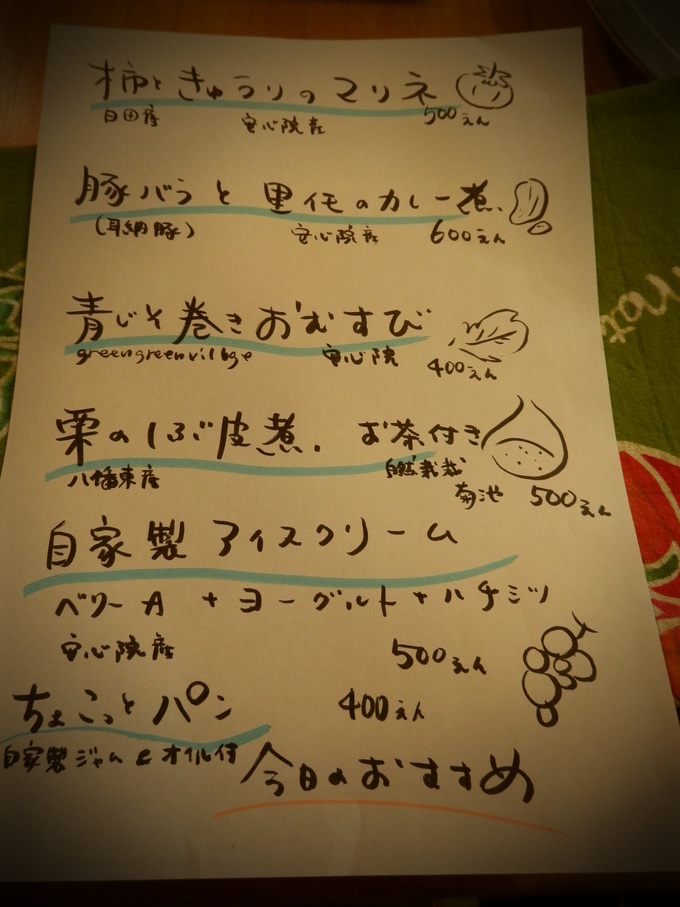 柿ときゅうりのマリネ
日田産 安心院産 500えん
豚バラと里芋のカレー煮
(耳納豚) 安心院産 600えん
青じそ巻きおむすび
greengreenvillage 安心院 400えん
栗のしぶ皮煮. お茶付き
八幡東産 自然栽培
菊池 500えん
自家製アイスクリーム
ベリーA + ヨーグルト + ハチミツ
安心院産 500えん
ちょこっとパン 400えん
自家製ジャム&オイル付
今日のおすすめ